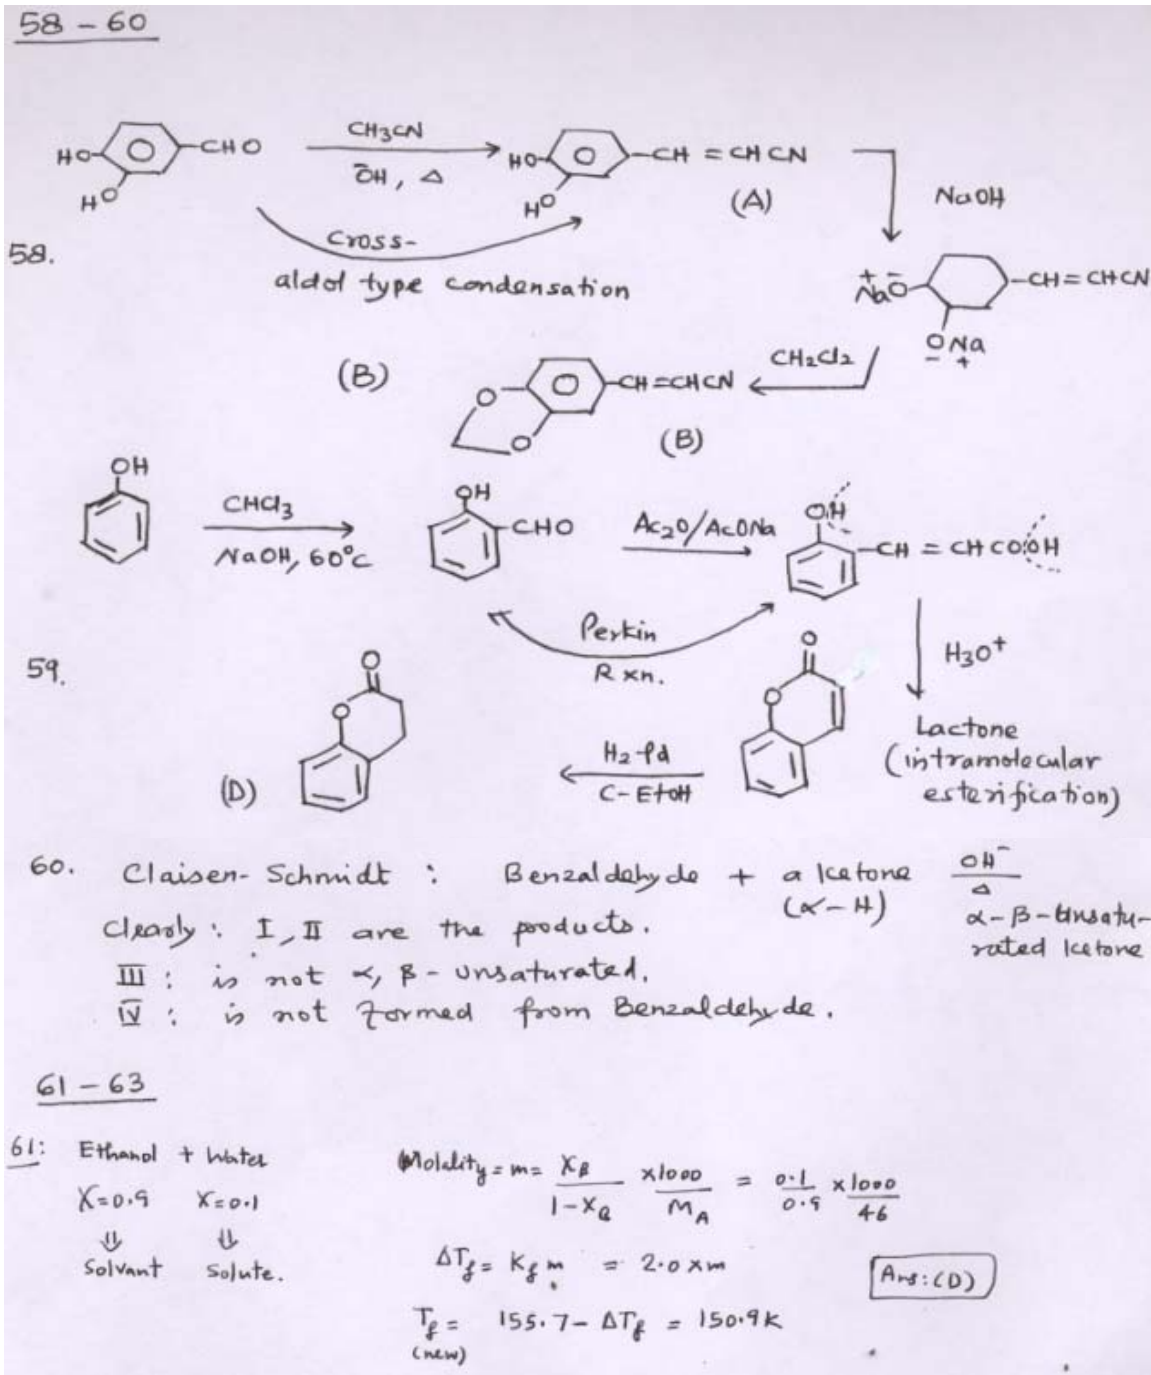 58 – 60
HO
HO
CHO
CH3CN
ŌH, Δ
HO
HO
CH = CHCN
(A)
NaOH
58.
Cross-
aldol type condensation
+ -
NaO
CH = CHCN
ONa
- +
CH2Cl2
(B)
O
O
CH = CHCN
(B)
OH
CHCl3
NaOH, 60°C
OH
CHO
Ac2O/AcONa
OH
CH = CHCOOH
Perkin
Rxn.
H3O+
59.
O
O
O
O
Lactone
(intramolecular
esterification)
H2-Pd
C-EtOH
(D)
60. Claisen-Schmidt : Benzaldehyde + a ketone OH-
Δ
(α-H)
α-β-Unsatu-
rated ketone
Clearly : I, II are the products.
III : is not α, β - unsaturated.
IV : is not formed from Benzaldehyde.
61 – 63
61: Ethanol + Water
X=0.9 X=0.1
⇓ ⇓
Solvant Solute.
Molality = m = XB / 1-XB x 1000 / MA = 0.1 / 0.9 x 1000 / 46
ΔTf = Kf m = 2.0 x m
Ans: (D)
Tf = 155.7 - ΔTf = 150.9K
(new)